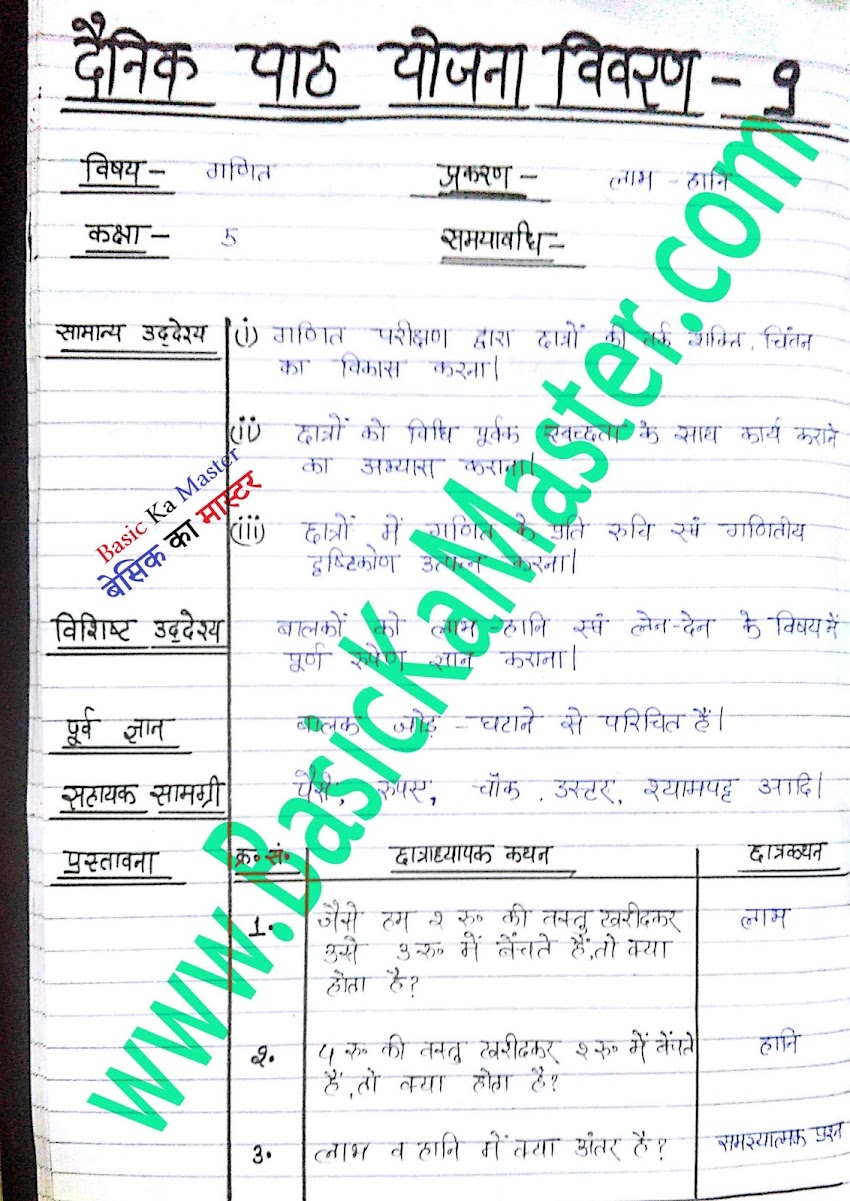 दैनिक पाठ योजना विवरण - 9
विषय - गणित प्रकरण - लाभ - हानि
कक्षा - 5 समयावधि -
सामान्य उद्देश्य (i) गणित परीक्षण द्वारा छात्रों की तर्क शक्ति, चिंतन
का विकास करना।
(ii) छात्रों को विधि पूर्वक स्वच्छता के साथ कार्य कराने
का अभ्यास कराना।
Basic Ka Master
बेसिक का मास्टर
(iii) छात्रों में गणित के प्रति रुचि एवं गणितीय
दृष्टिकोण उत्पन्न करना।
विशिष्ट उद्देश्य बालकों को लाभ-हानि एवं लेन-देन के विषय में
पूर्ण रुपेण ज्ञान कराना।
पूर्व ज्ञान बालक जोड़ - घटाने से परिचित हैं।
सहायक सामग्री पैसे, रुपए, चॉक, डस्टर, श्यामपट्ट आदि।
प्रस्तावना क्र॰ सं॰ छात्राध्यापक कथन छात्रकथन
1. जैसे हम २ रु॰ की वस्तु खरीदकर लाभ
उसे 3 रु॰ में बेंचते हैं, तो क्या
होता है?
२. 4 रु॰ की वस्तु खरीदकर २ रु॰ में बेंचते हानि
हैं, तो क्या होता है?
3. लाभ व हानि में क्या अंतर है? समस्यात्मक प्रश्न
www.BasicKaMaster.com